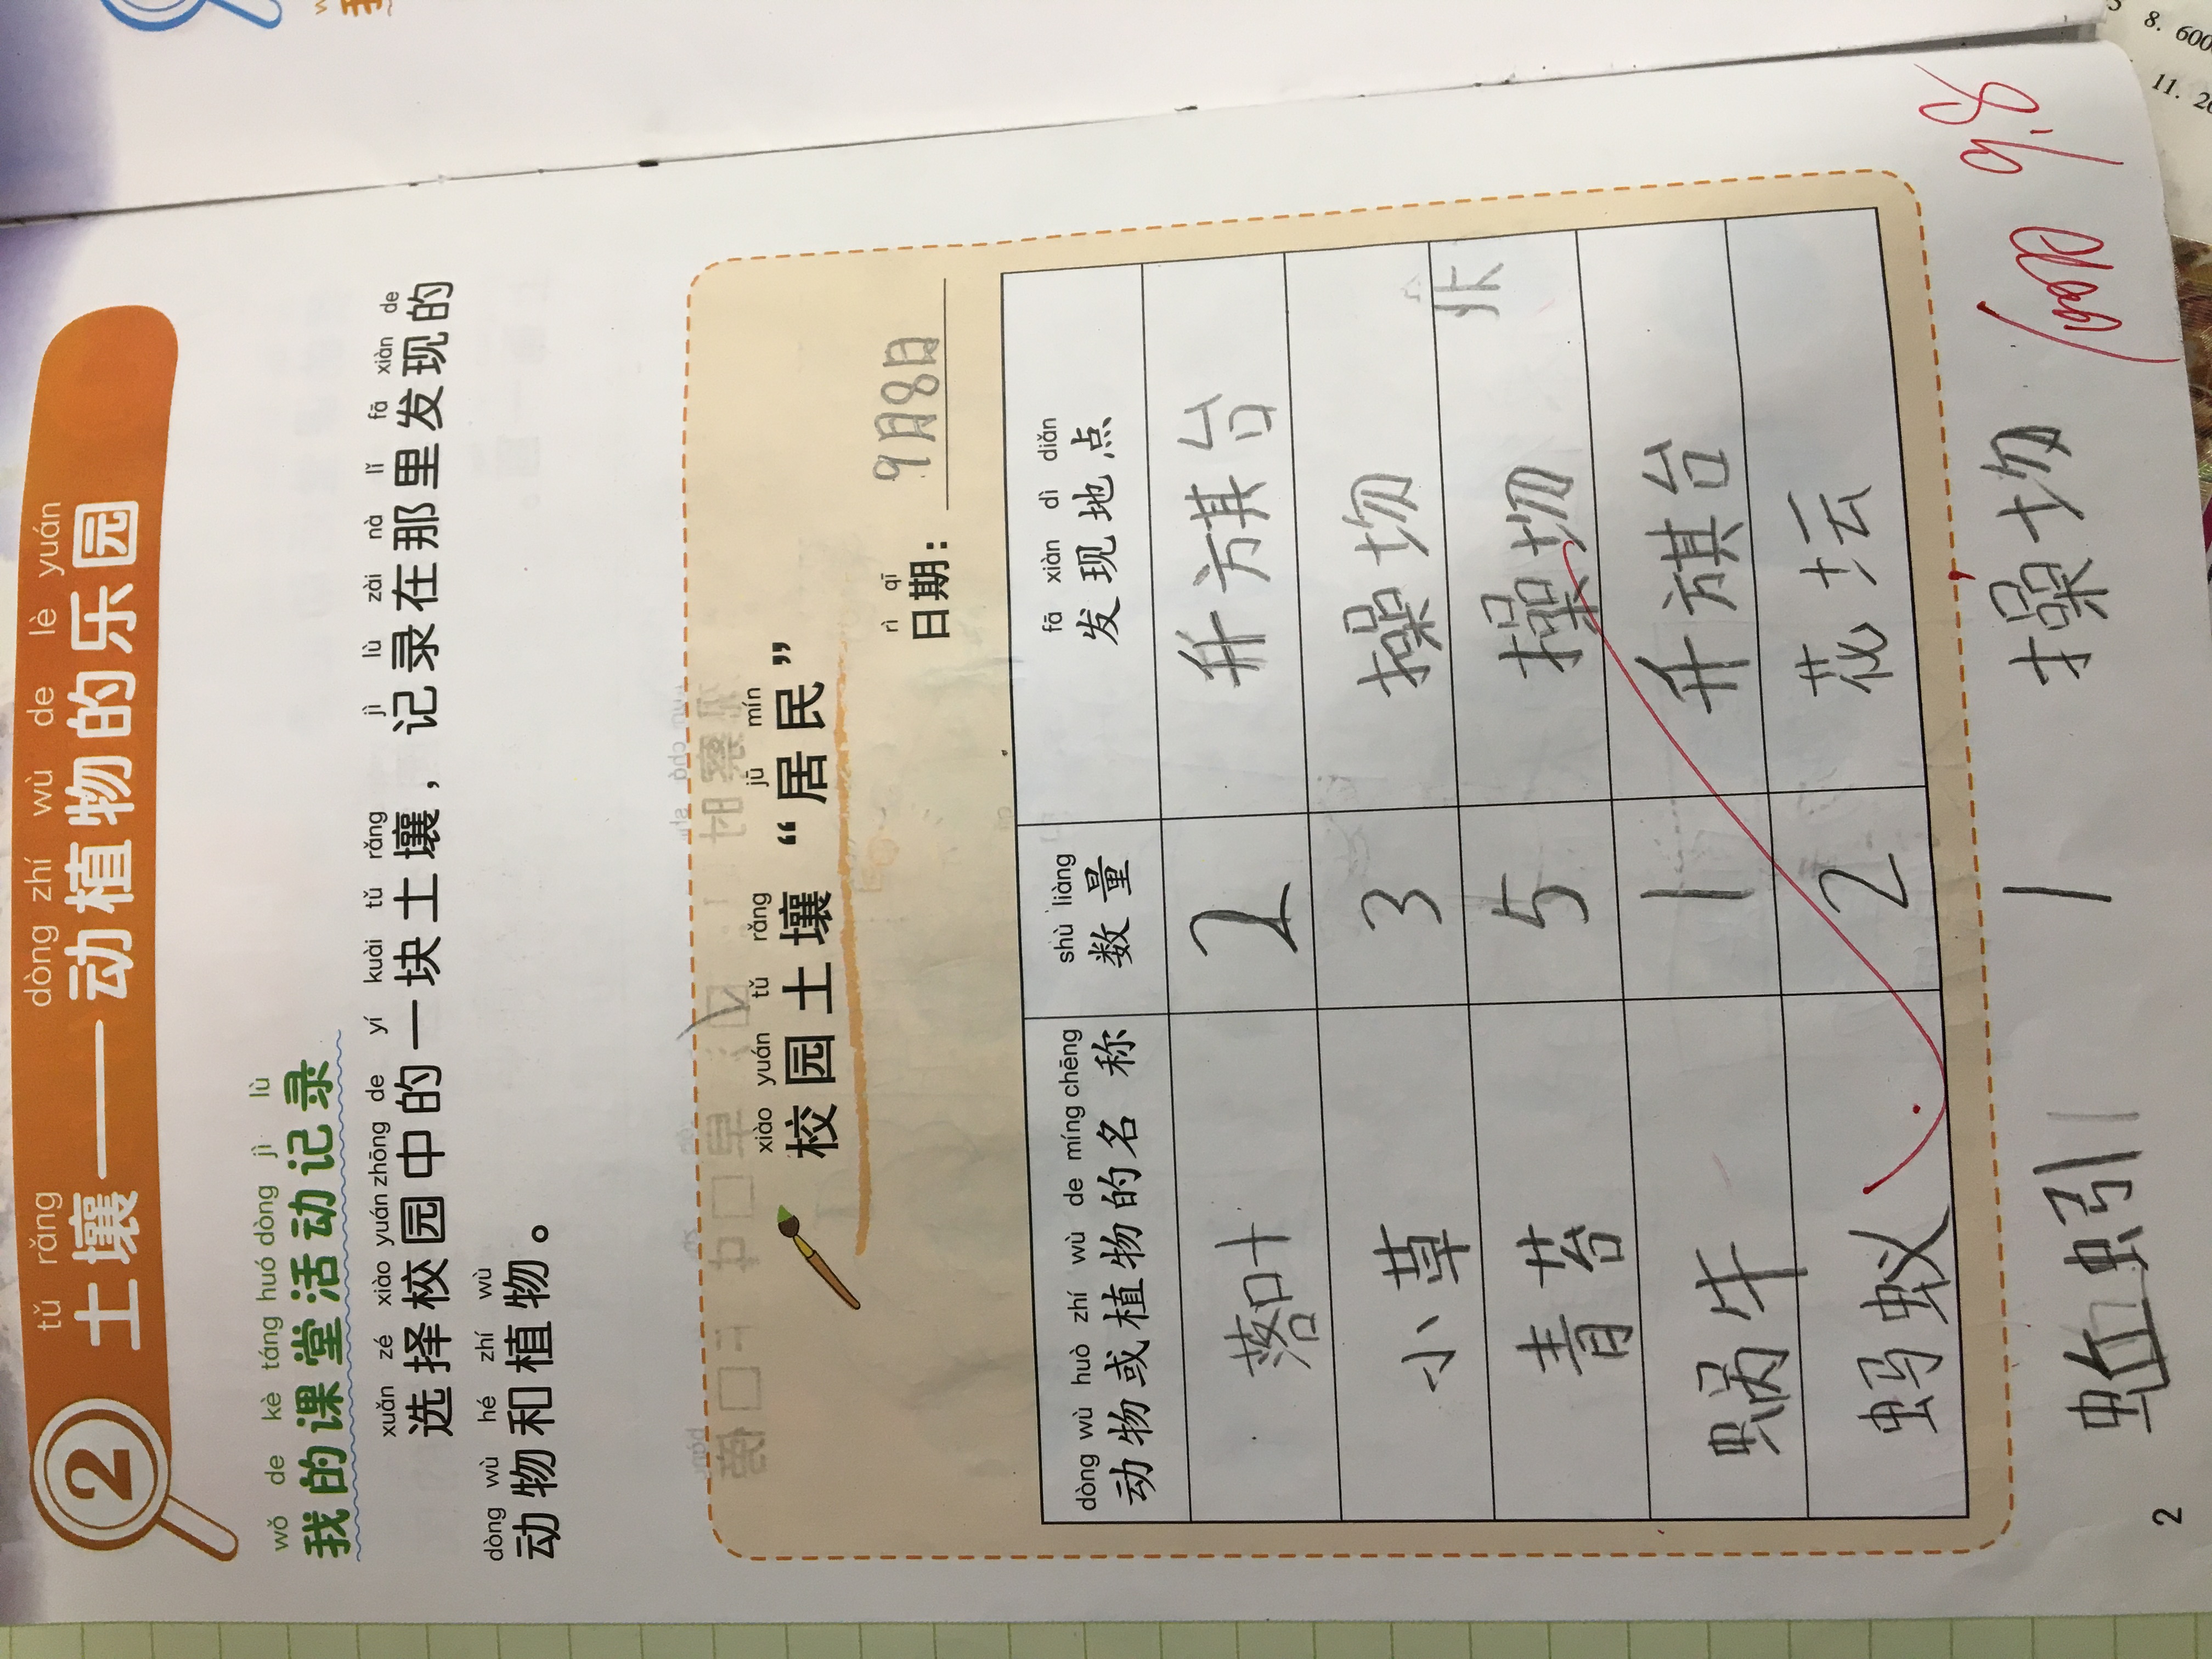 2
tǔ rǎng dòng zhí wù de lè yuán
土壤——动植物的乐园
wǒ de kè táng huó dòng jì lù
我的课堂活动记录
xuǎn zé xiào yuán zhōng de yí kuài tǔ rǎng jì lù zài nà lǐ fā xiàn de
选择校园中的一块土壤，记录在那里发现的
dòng wù hé zhí wù
动物和植物。
xiào yuán tǔ rǎng jū mín
校园土壤“居民”
rì qī
日期：9月8日
dòng wù huò zhí wù de míng chēng shù liàng fā xiàn dì diǎn
动物或植物的名称 数量 发现地点
落叶 2 升旗台
小草 3 操场
青苔 5 操场
蜗牛 1 升旗台
蚂蚁 2 花坛
蚯蚓 1 操场
2
8. 600
11. 20